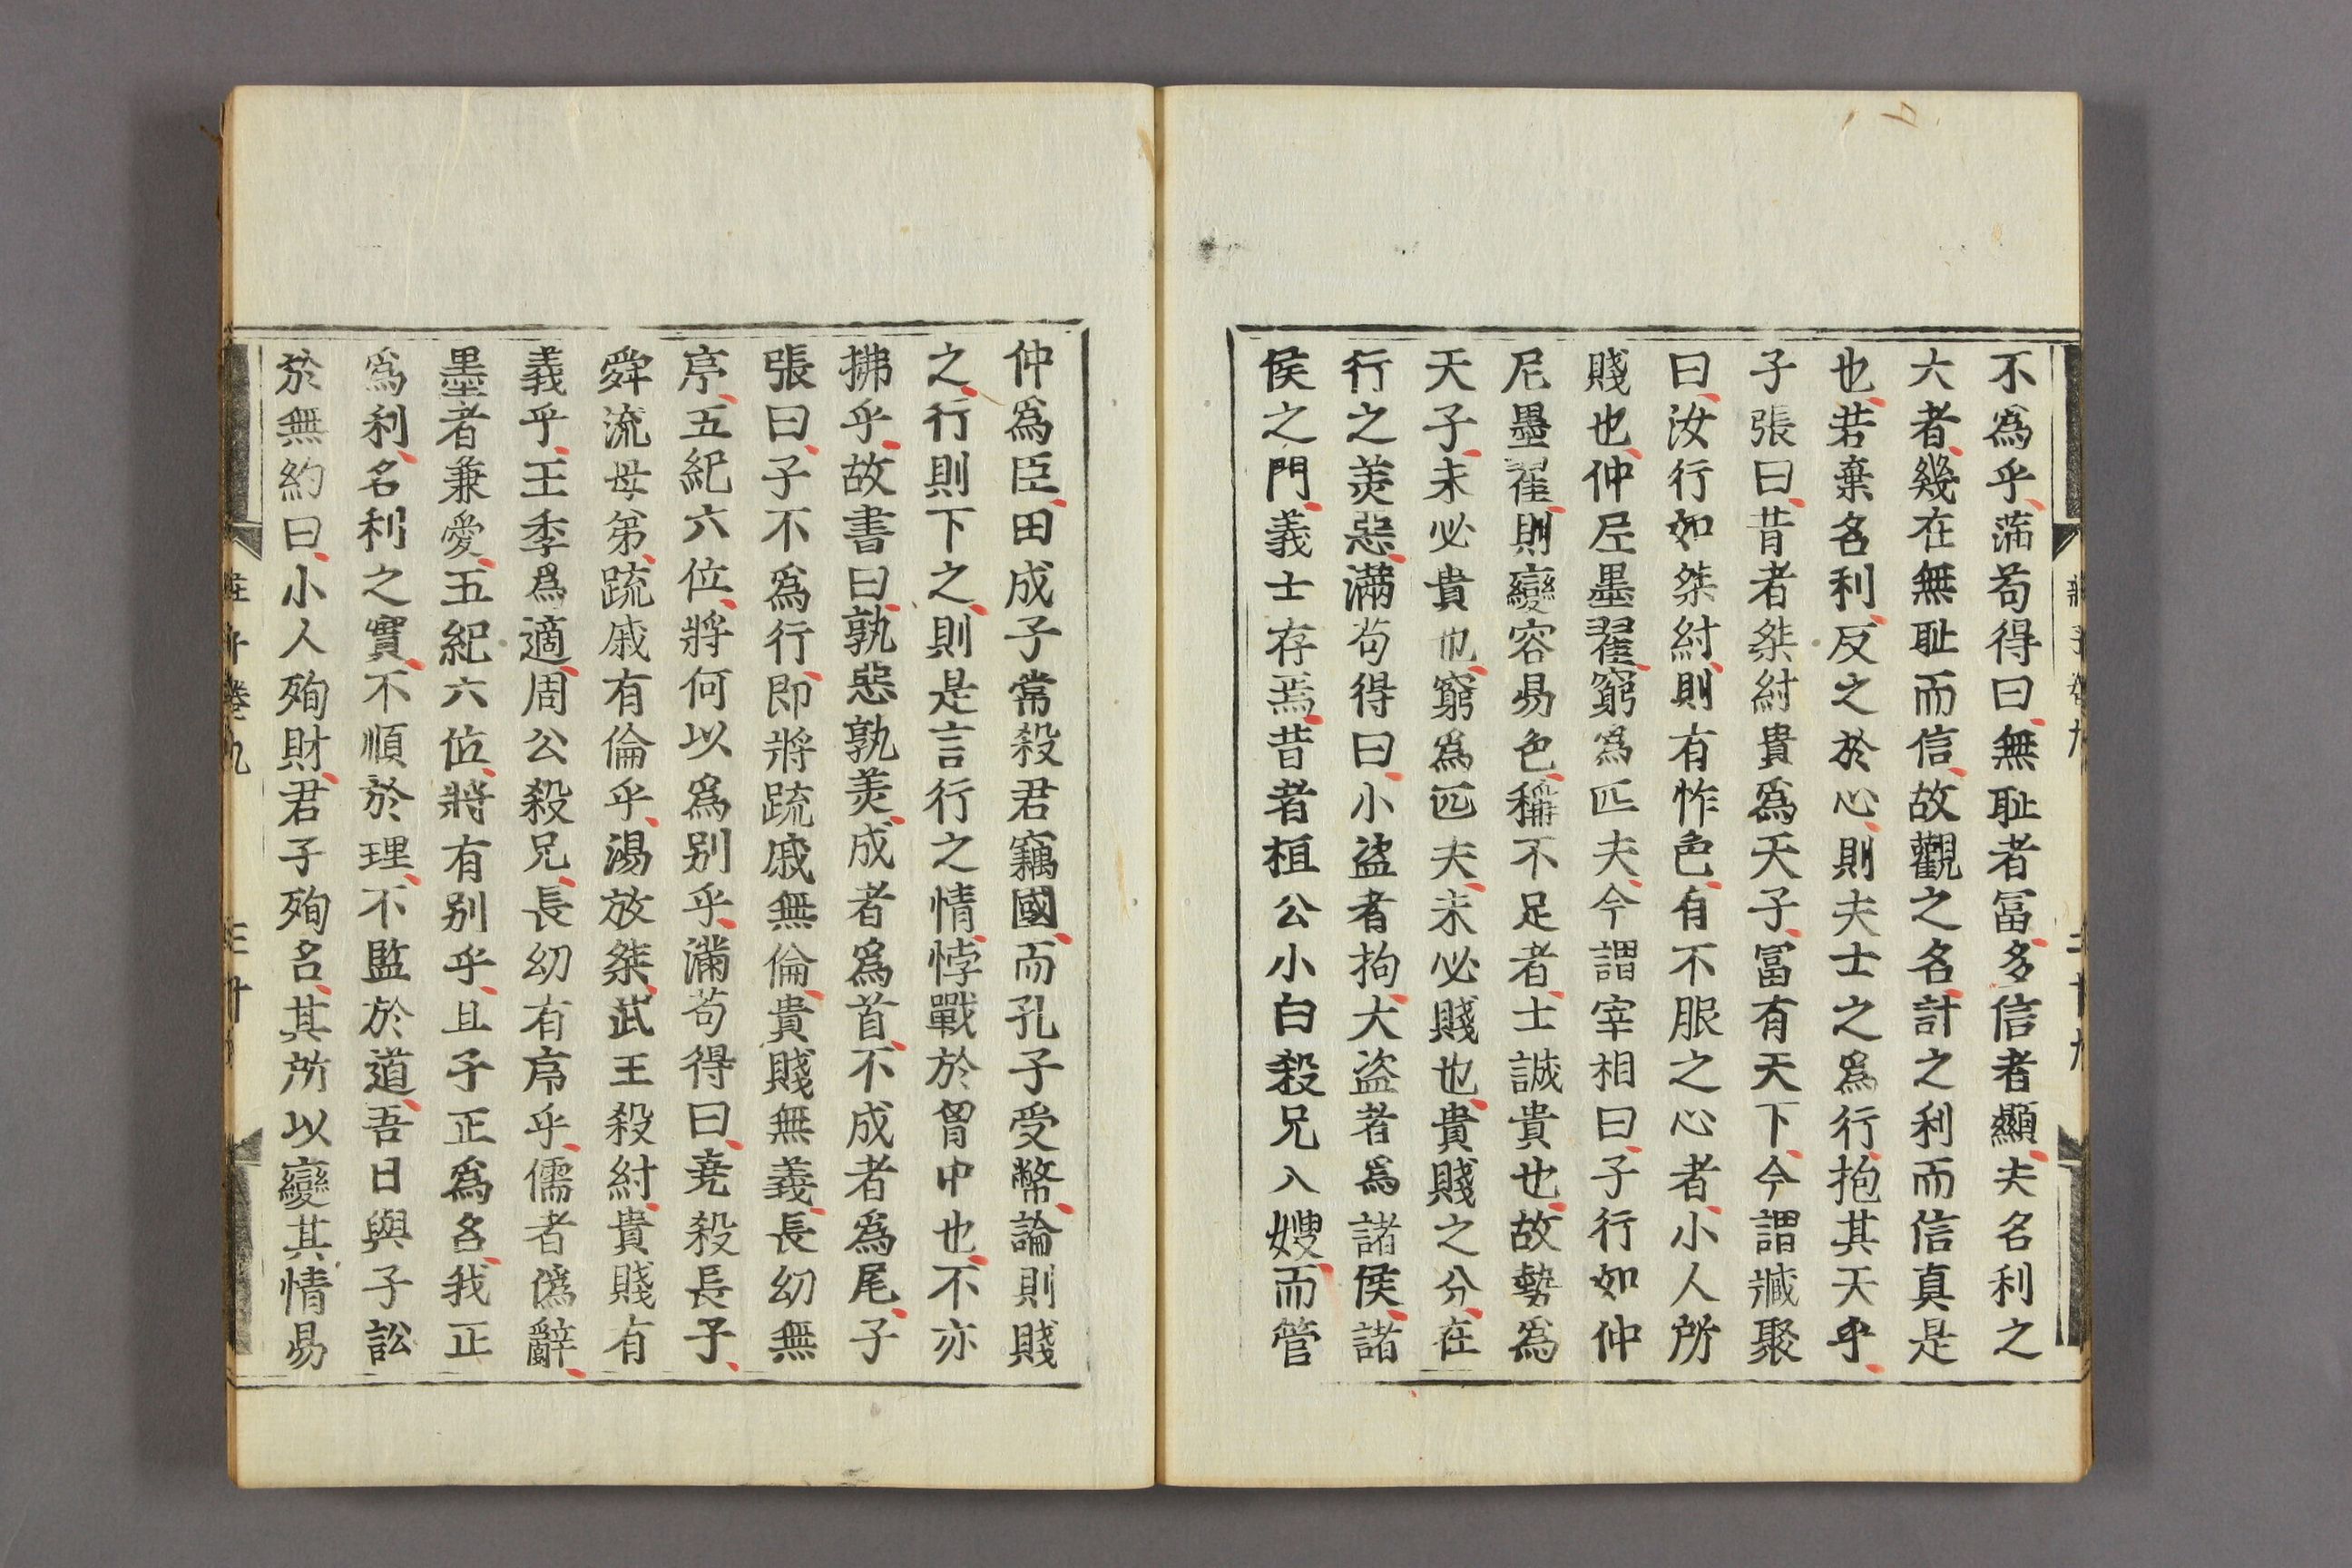 不爲乎滿苟得曰無耻者富多信者顯夫名利之
大者幾在無耻而信故觀之名計之利而信真是
也若棄名利反之於心則夫士之爲行抱其天乎
子張曰昔者桀紂貴爲天子富有天下今謂臧聚
曰汝行如桀紂則有怍色有不服之心者小人所
賤也仲尼墨翟窮爲匹夫今謂宰相曰子行如仲
尼墨翟則變容易色稱不足者士誠貴也故勢爲
天子未必貴也窮爲匹夫未必賤也貴賤之分在
行之羙惡滿苟得曰小盗者拘大盗者爲諸侯諸
侯之門義士存焉昔者桓公小白殺兄入嫂而管
仲爲臣田成子常殺君竊國而孔子受幣論則賤
之行則下之則是言行之情悖戰於胷中也不亦
拂乎故書曰孰惡孰羙成者爲首不成者爲尾子
張曰子不爲行即將疏戚無倫貴賤無義長幼無
序五紀六位將何以爲别乎滿苟得曰堯殺長子
舜流母弟疏戚有倫乎湯放桀武王殺紂貴賤有
義乎王季爲適周公殺兄長幼有序乎儒者僞辭
墨者兼愛五紀六位將有别乎且子正爲名我正
爲利名利之實不順於理不監於道吾日與子訟
於無約曰小人殉財君子殉名其所以變其情易
莊子卷九 三十